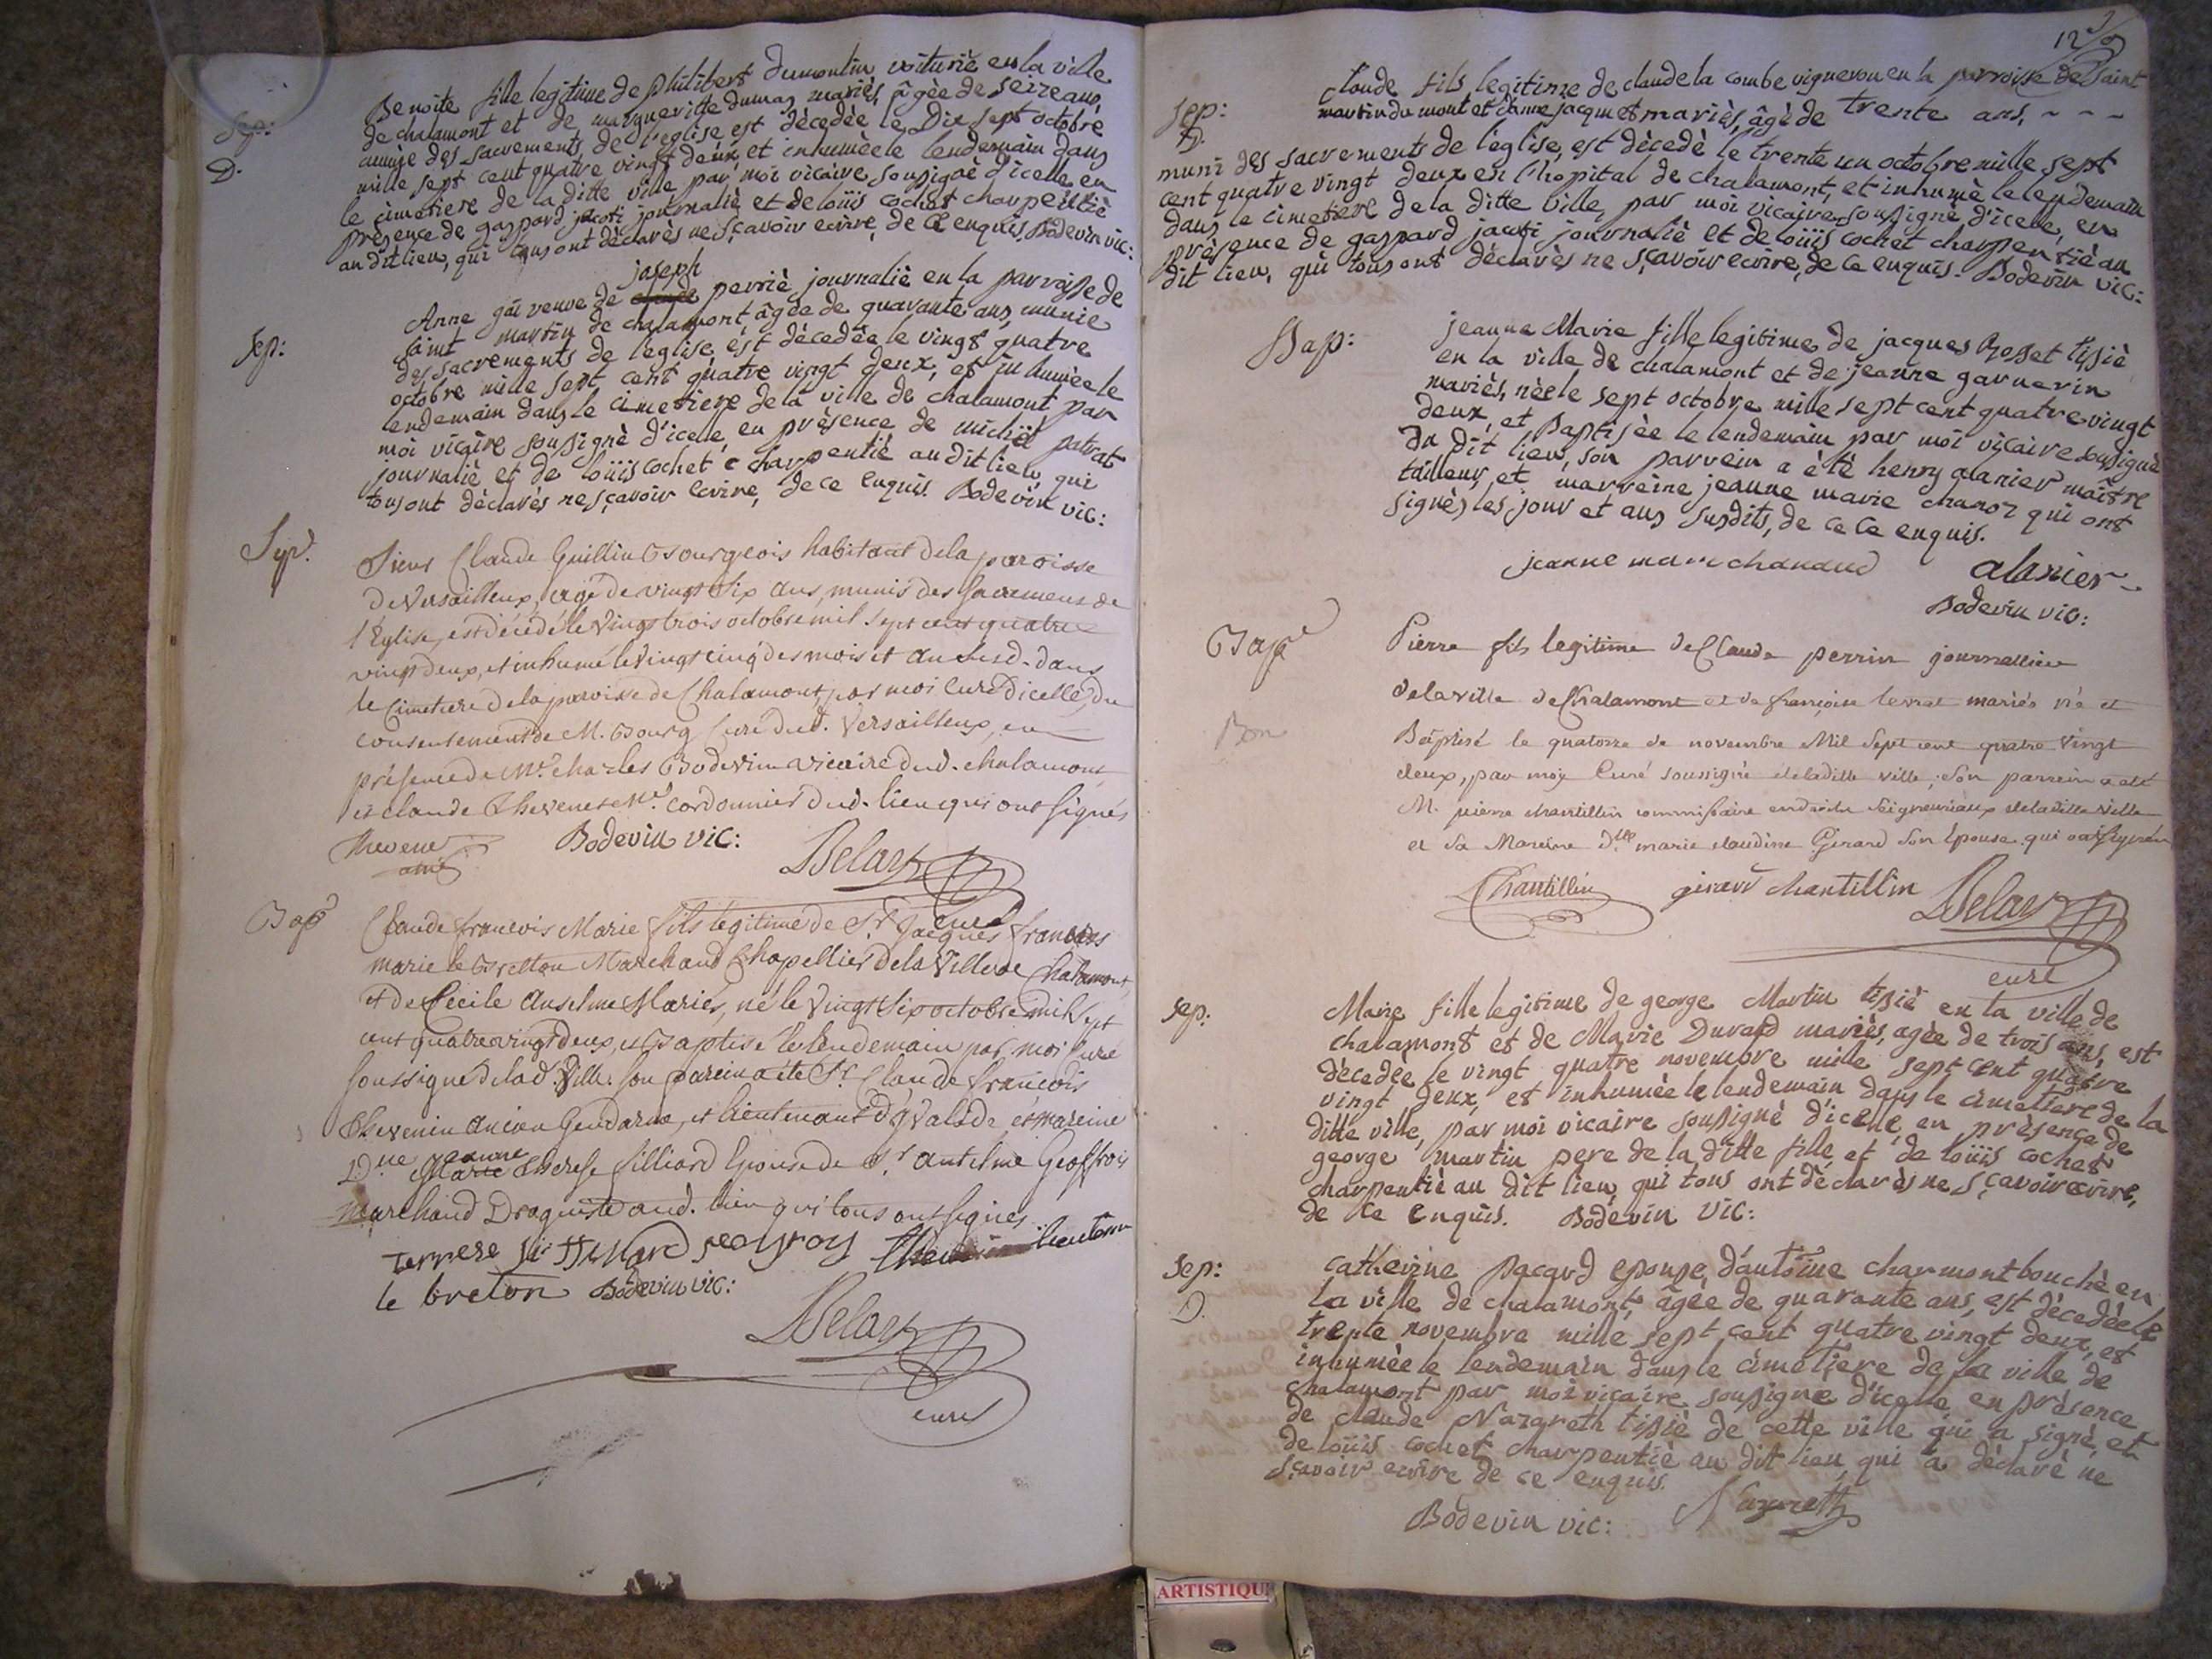 Sep:
D.
Benoite fille legitime de philibert dumontin voiturié en la ville
de chalamont et de margueritte dumas mariés, âgée de seize ans,
munie des sacrements de l'eglise, est décedée le dix sept octobre
mille sept cent quatre vingt deux, et inhumée le lendemain dans
le cimetiere de la ditte ville par moi vicaire soussigné d'icelle, en
présence de gaspard jacoti journalié et de loüis cochet charpentié
au dit lieu, qui tous ont déclarés ne sçavoir ecrire, de ce enquis. Bodevin vic:
Sep:
joseph
Anne gai veuve de claude perrié journalié en la parroisse de
saint martin de chalamont âgée de quarante ans, munie
des sacrements de l'eglise, est décedée le vingt quatre
octobre mille sept cent quatre vingt deux, et inhumée le
lendemain dans le cimetiere de la ville de chalamont par
moi vicaire soussigné d'icelle, en présence de michel patrat
journalié et de loüis cochet charpentié au dit lieu, qui
tous ont déclarés ne sçavoir ecrire, de ce enquis. Bodevin vic:
Sep.
Sieur Claude Guillin Bourgeois habitant de la paroisse
de Versailleux, agé de vingt six ans, munis des sacremens de
l'Eglise, est décédé le vingt trois octobre mil sept cent quatre
vingt deux, et inhumé le vingt cinq des mois et an susd. dans
le Cimetiere de la paroisse de Chalamont, par moi Curé d'icelle, du
consentement de M. Bourg Curé dud. Versailleux, en
présence de Mr. charles Bodevin vicaire dud. chalamont
et claude Thevenet Me. Cordonnier dud. lieu qui ont signés
Thevenet Bodevin vic: Delay
ainé
curé
Bap
Claude francois Marie fils legitime de Sr. Jacques francois
marie le Bretton Marchand Chapellier de la Ville de Chalamont,
et de Cécile Anselme Mariés, né le vingt six octobre mil sept
cent quatre vingt deux, et Baptisé le lendemain par moi Curé
soussigné de lad. Ville. son parein a été Sr. Claude francois
Thevenin ancien Gendarme, et lieutenant d'invalide, et mareine
jeanne
Dne Marie Therese filliard Epouse de Sr. antelme Geoffroi
Marchand Droguiste aud. lieu qui tous ont signés.
terrese filliard geofroy Thevenin lieutenn
le breton Bodevin vic:
Delay
curé
12
Sep:
D.
claude fils legitime de claude la combe vigneron en la parroisse de saint
martin du mont et d'anne jacquet mariés, âgé de trente ans, ~ ~ ~
muni des sacrements de l'eglise, est décedé le trente un octobre mille sept
cent quatre vingt deux en l'hopital de chalamont, et inhumé le lendemain
dans le cimetiere de la ditte ville, par moi vicaire soussigné d'icelle, en
présence de gaspard jacoti journalié et de loüis cochet charpentié au
dit lieu, qui tous ont déclarés ne sçavoir ecrire, de ce enquis. Bodevin vic:
Bap:
jeanne Marie fille legitime de jacques Rosset tissié
en la ville de chalamont et de jeanne garnerin
mariés, née le sept octobre mille sept cent quatre vingt
deux, et Baptisée le lendemain par moi vicaire soussigné
du dit lieu, son parrein a été henry alanier maître
tailleur, et marreine jeanne marie chanoz qui ont
signés les jour et ans susdits, de ce enquis.
jeanne marie chanaud alanier
Bodevin vic:
Bap
Bon
Pierre fils legitime de Claude perrin journallier
de la ville de Chalamont et de françoise terrat mariés né et
Baptisé le quatorze de novembre Mil sept cent quatre vingt
deux, par moy Curé soussigné de la ditte ville; son parrein a été
M. pierre chantillin commissaire en droits seigneuriaux de la ditte ville
et sa Mareine Dlle marie claudine Girard son Epouse qui ont signés
Chantillin girard chantillin Delay
curé
Sep:
Marie fille legitime de george Martin tissié en la ville de
chalamont et de Marie Durand mariés, agée de trois ans, est
décedée le vingt quatre novembre mille sept cent quatre
vingt deux, et inhumée le lendemain dans le cimetiere de la
ditte ville, par moi vicaire soussigné d'icelle, en présence de
george martin pere de la ditte fille, et de loüis cochet
charpentié au dit lieu, qui tous ont déclarés ne sçavoir ecrire,
de ce enquis. Bodevin vic:
Sep:
D.
Catherine pacard epouse d'antoine charmont bouché en
la ville de chalamont, âgée de quarante ans, est décedée le
trente novembre mille sept cent quatre vingt deux, et
inhumée le lendemain dans le cimetiere de la ville de
chalamont par moi vicaire soussigné d'icelle, en présence
de claude Nazareth tissié de cette ville qui a signé, et
de loüis cochet charpentié au dit lieu qui a déclaré ne
sçavoir ecrire de ce enquis.
Bodevin vic: Nazareth
ARTISTIQU